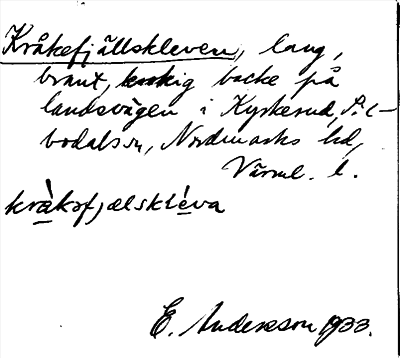 Kråkefjällskleven, lång,
brant, krokig backe på
landsvägen i Kyrkerud, Sil-
bodals sn, Nordmarks hd,
Värml. l.
kràkəfjælskléva
E. Andersson 1933.